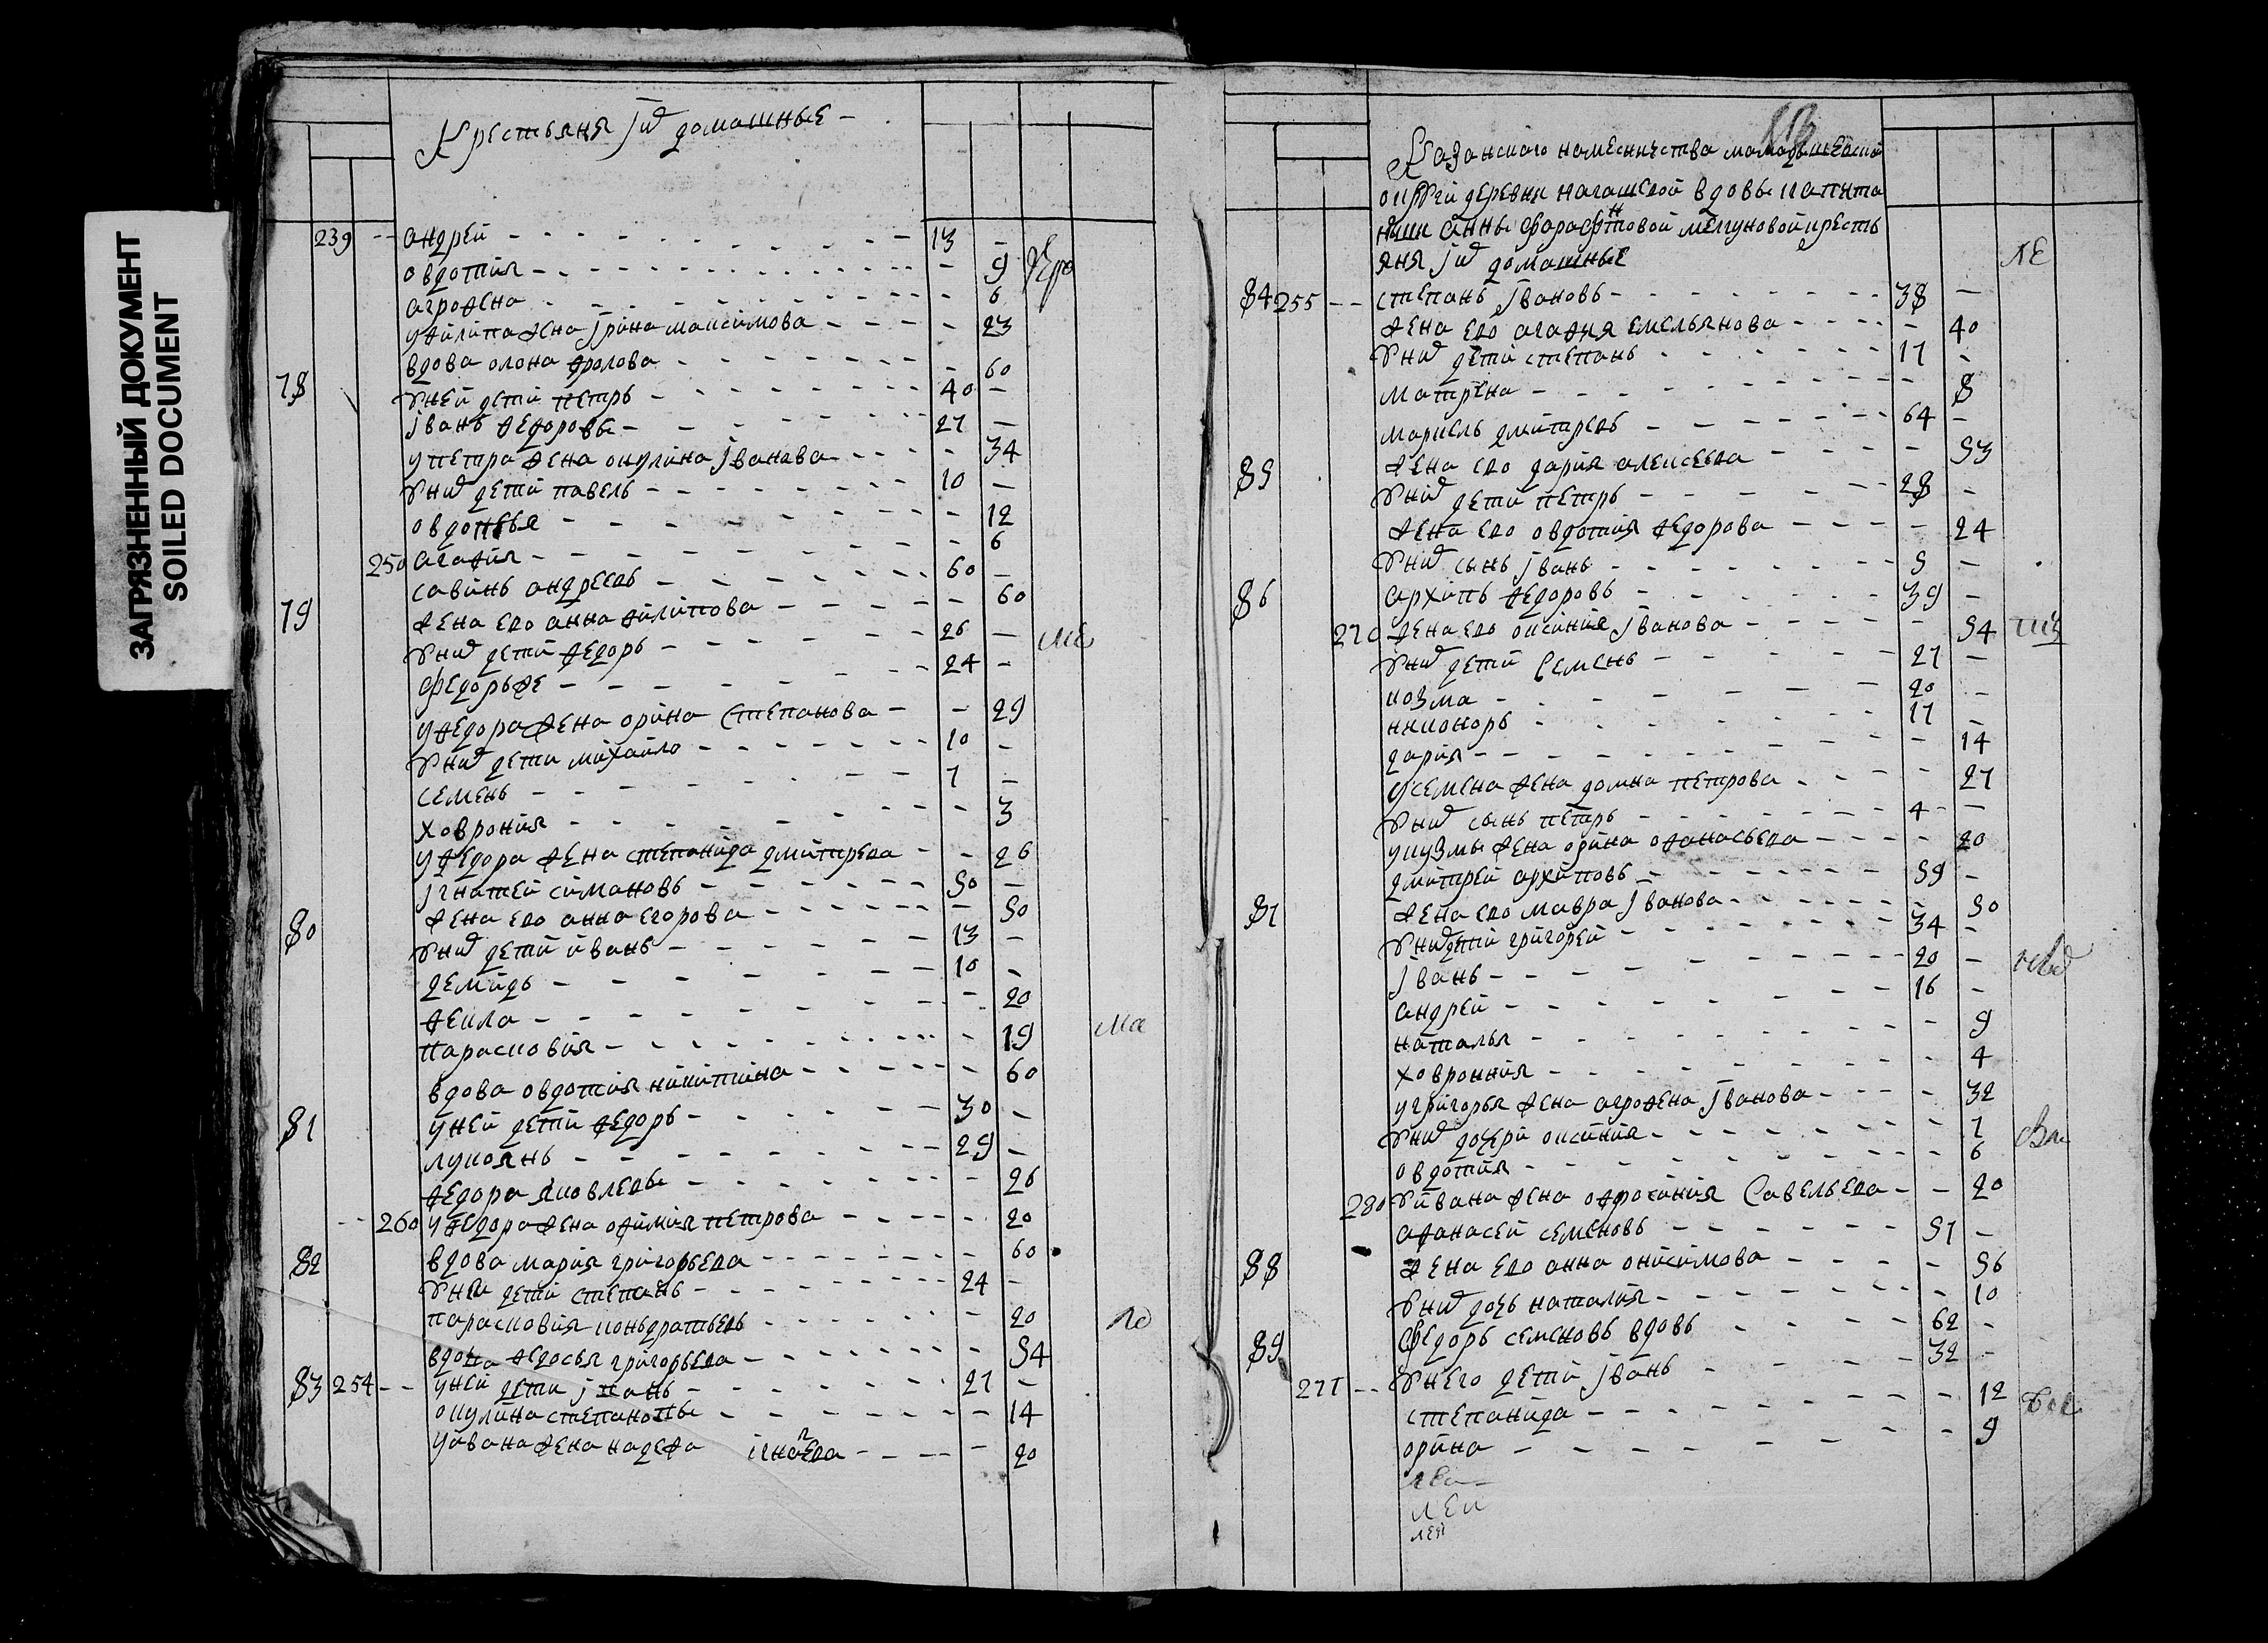 ЗАГРЯЗНЕННЫЙ ДОКУМЕНТ
SOILED DOCUMENT
Крестьяня і домашные
239 андрей 13 -
овдотия - 9
агрофена - 6
уфилипа жена ірина максимова - 23
78 вдова олона фролова - 60
уней дети петръ 40 -
іванъ федоровы 27 -
упетра жена окулина іванова - 34
уних дети павелъ 10 -
овдотья - 12
250 агафия - 6
79 савинъ андреевъ 60 -
жена ево анна филипова - 60
уних дети федоръ 26 -
федоръже 24 -
уфедора жена орина степанова - 29
уних дети михайло 10 -
семенъ 7 -
ховрония - 3
уфедора жена степанида дмитрева - 26
80 ігнатей симановъ 50 -
жена ево анна егорова - 50
уних дети иванъ 13 -
демидъ 10 -
фекла - 20
парасковия - 19
81 вдова овдотия никитина - 60
уней дети федоръ 30 -
лукоянъ 29 -
федора яковлевы - 26
260 уфедора жена офимия петрова - 20
82 вдова мария григорьева - 60
уней дети степанъ 24 -
парасковия - 20
83 254 вдова федосья григорьева - 54
уней дети іванъ 27 -
окулина степановы - 14
уивана жена надежа игнатева - 20
Казанского намесничества мамадышской
округи деревни вдовы капита
нши анны крестъ
яня і домашные
84 255 степанъ івановъ 38 -
жена ево агафия емельянова - 40
уних дети степанъ 17 -
матрена - 8
85 маркелъ дмитревъ 64 -
жена ево дария алексеева - 53
уних дети петръ 28 -
жена ево овдотия федорова - 24
уних сынъ іванъ 5 -
86 архипъ федоровъ 39 -
270 жена ево оксиния іванова - 54
уних дети семенъ 27 -
козма 20 -
никоноръ 17 -
дария - 14
усемена жена домна петрова - 27
уних сынъ петръ 4 -
укузмы жена орина офанасьева - 20
87 дмитрей архиповъ 59 -
жена ево мавра іванова - 50
уних дети григорей 34 -
іванъ 20 -
андрей 16 -
наталья - 9
ховрония - 4
угригорья жена агрофена іванова - 32
уних дочери оксиния - 7
овдотия - 6
280 уивана жена офросиния савельева - 20
88 афанасей семеновъ 57 -
жена ево анна онисимова - 56
уних дочь наталия - 10
89 федоръ семеновъ вдовъ 62 -
277 унего дети іванъ 32 -
степанида - 12
орина - 9